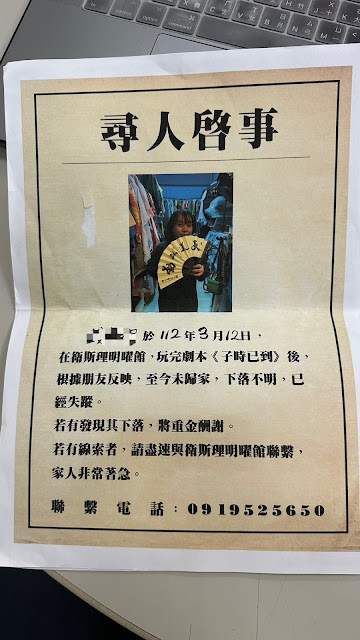 尋人啓事
於112年3月12日，
在衛斯理明曜館，玩完劇本《子時已到》後，
根據朋友反映，至今未歸家，下落不明，已
經失蹤。
若有發現其下落，將重金酬謝。
若有線索者，請盡速與衛斯理明曜館聯繫，
家人非常著急。
聯繫電話：0919525650